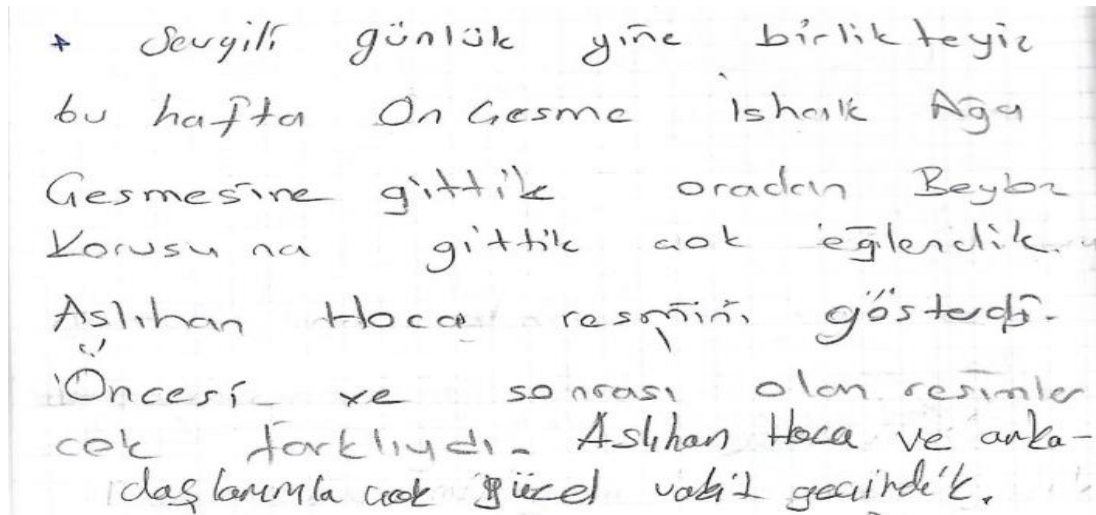 * Sevgili günlük yine birlikteyiz
bu hafta On Çesme Ishak Ağa
Çesmesine gittik oradan Beykoz
Korusu na gittik çok eğlendik.
Aslıhan Hoca resmini gösterdi.
Öncesi ve sonrası olan resimler
cok farklıydı. Aslıhan Hoca ve arka-
daşlarımla çok güzel vakit geçirdik.